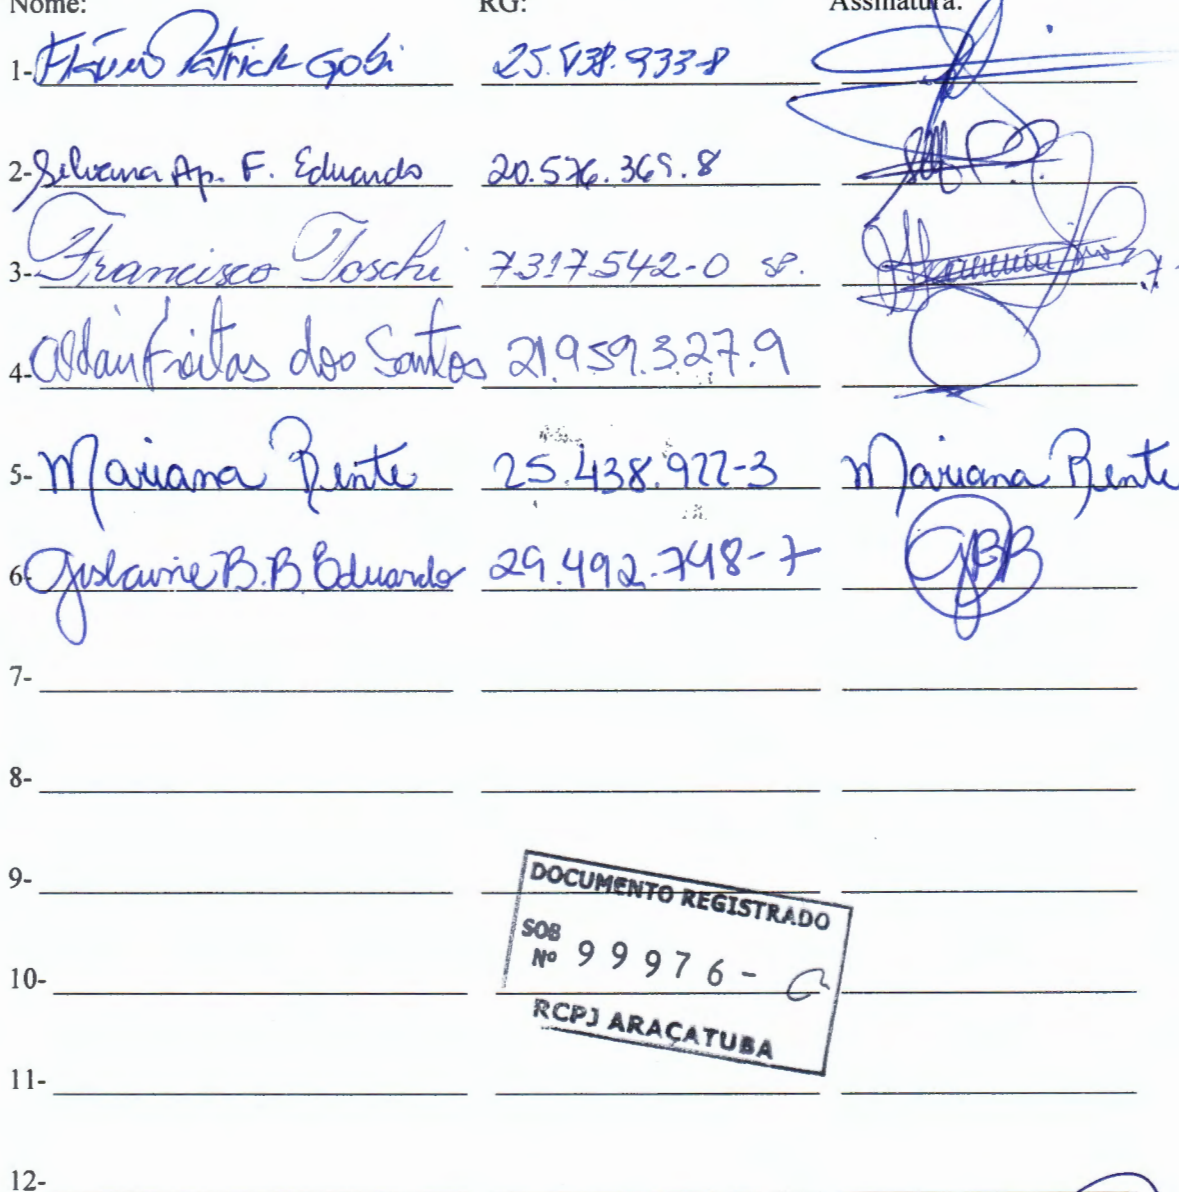 Nome: RG: Assinatura:
1- Flávio Patrick Gobi 25.438.933-8
2- Silvana Ap. F. Eduardo 20.576.369.8
3- Francisco Toschi 7317542-0 SP.
4- Aldair Freitas dos Santos 21.959.327.9
5- Mariana Rente 25.438.922-3 Mariana Rente
6- Gislaine B.B Eduardo 29.492.748-7 GBB
7-
8-
9-
DOCUMENTO REGISTRADO
SOB
Nº 99976-
10-
RCPJ ARAÇATUBA
11-
12-